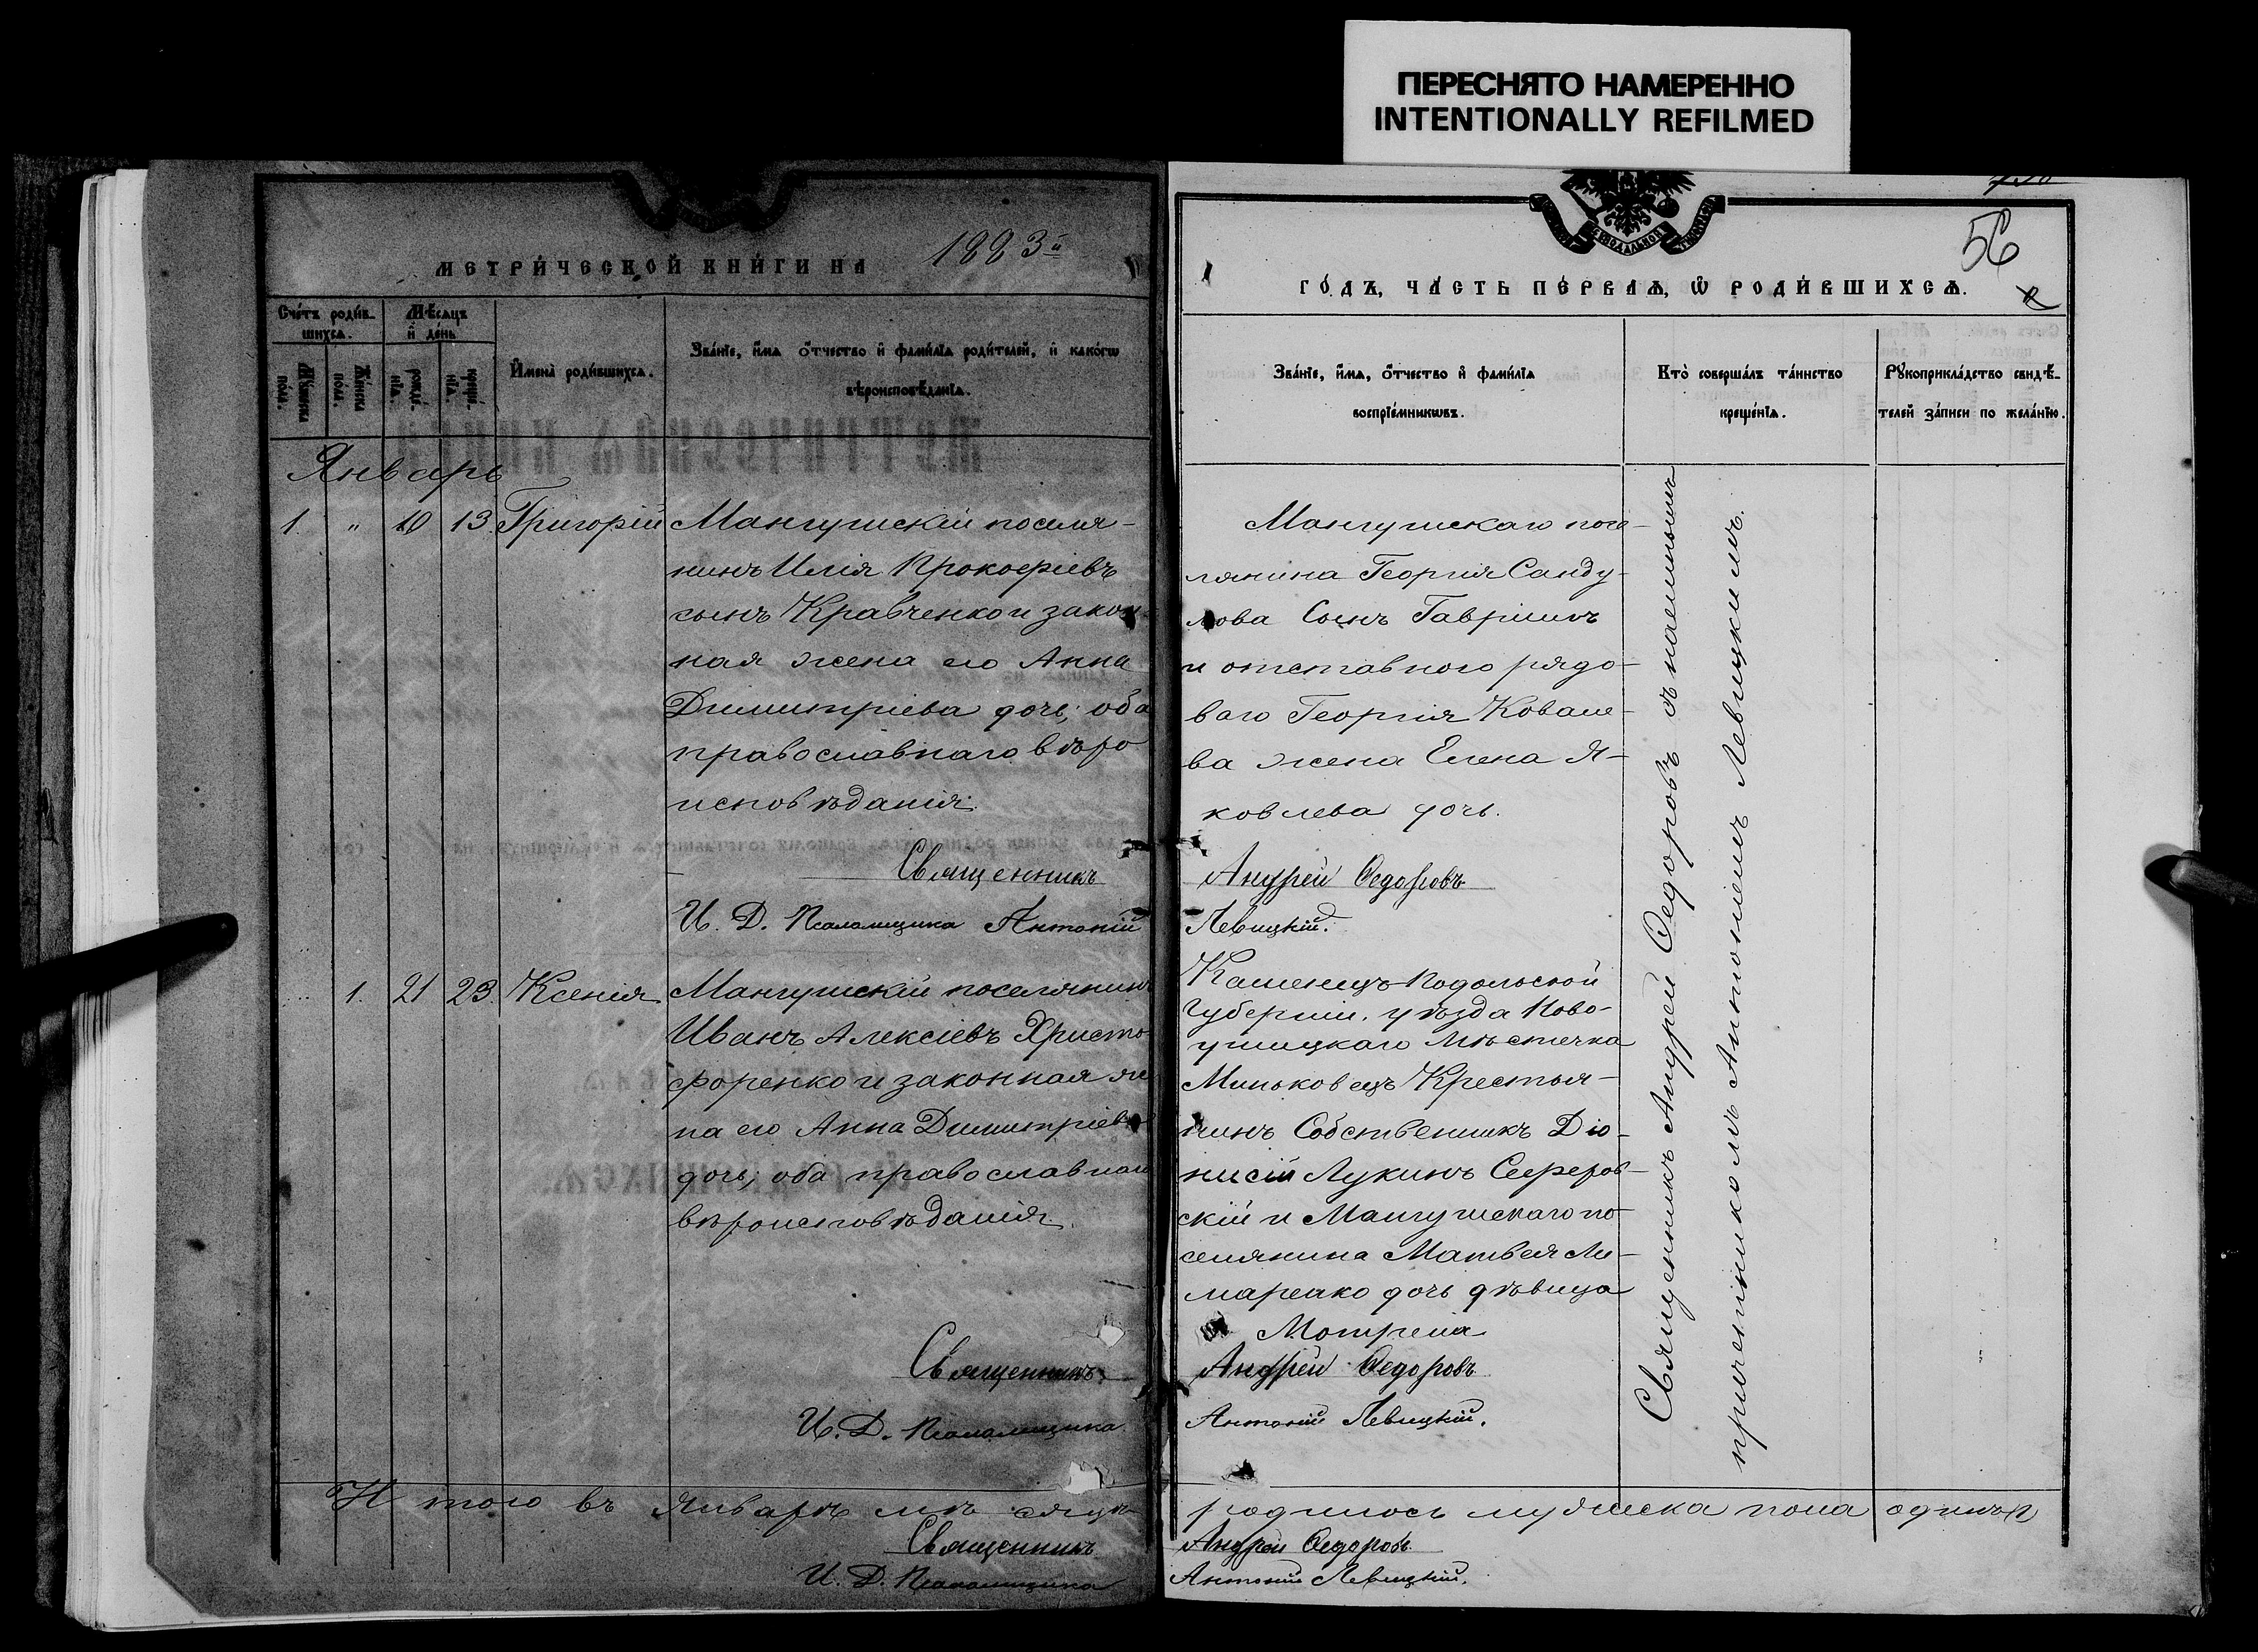 ПЕРЕСНЯТО НАМЕРЕННО
INTENTIONALLY REFILMED
МЕТРИ́ЧЕСКОЙ КНИ́ГИ НА 1883й
56
ГО́ДЪ, ЧА́СТЬ ПЕ́РВАѦ, Ѿ РОДИ́ВШИХСѦ.
Сче́тъ роди́в-
шихсѧ.
Мѣ́сѧцъ
и҆ де́нь
Му́жеска по́ла.
Же́нска по́ла.
рожде́нїѧ.
креще́нїѧ.
И҆мена̀ роди́вшихсѧ.
Зва́нїе, и҆́мѧ ѻ҆́тчество и҆ фамилїѧ роди́телей, и҆ како́гѡ
вѣроисповѣ́данїѧ.
Зва́нїе, и҆́мѧ, ѻ҆́тчество и҆ фами́лїѧ
воспрїе́мникѡвъ.
Кто̀ соверша́лъ та́инство
креще́нїѧ.
Рꙋкоприкла́дство свидѣ́-
телей за́писи по жела́нїю.
Январь
1. " 10 13. Григорій
Мангушскій поселя-
нинъ Илія Прокофіевъ
сынъ Кравченко и закон-
ная жена его Анна
Димитріева дочь; оба
православнаго вѣро
исповѣданія.
Священникъ
И. Д. Псаломщика Антоній
Мангушскаго посе-
лянина Георгія Санду-
лова Сынъ Гавріилъ
и отставного рядо-
ваго Георгія Ковале-
ва жена Елена Я-
ковлева дочь.
Андрей Ѳедоровъ
Левицкій.
Священникъ Андрей Ѳедоровъ съ наемнымъ
причетникомъ Антоніемъ Левицкимъ.
1. 21 23. Ксенія
Мангушскій поселянинъ
Иванъ Алексіевъ Христо
форенко и законная же
на его Анна Димитріева
дочь; оба православнаго
вѣроисповѣданія.
Священникъ
И. Д. Псаломщика
Каменецъ-Подольской
Губерніи. уѣзда Ново-
ушицкаго Мѣстечка
Миньковецъ Крестья-
нинъ Собственникъ Діо-
нисій Лукинъ
скій и Мангушскаго по
селянина Матвея Ли-
маренко дочь дѣвица
Мотрена
Андрей Ѳедоровъ
Антоній Левицкій.
И того въ Январѣ мѣсяцѣ родилось мужеска пола одинъ
Священникъ Андрей Ѳедоровъ
И. Д. Псаломщика Антоній Левицкій.